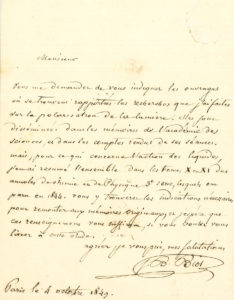 Monsieur
Vous me demandez de vous indiquer les ouvrages
où se trouvent rapportées les recherches que j'ai faites
sur la polarisation de la lumière. Elles sont
disséminées dans les mémoires de l'académie des
sciences, et dans les comptes rendus de ses séances.
mais, pour ce qui concerne l'action des liquides,
j'en ai résumé l'ensemble dans les tomes X et XI des
annales de chimie et de Physique 3e série, lesquels ont
paru en 1844. vous y trouverez les indications nécessaires
pour remonter aux mémoires originaux, et j'espère que
ces renseignemens vous suffiront, si vous voulez vous
livrer à cette étude.
agréer je vous prie, mes salutations
Biot
Paris le 4 octobre 1849.